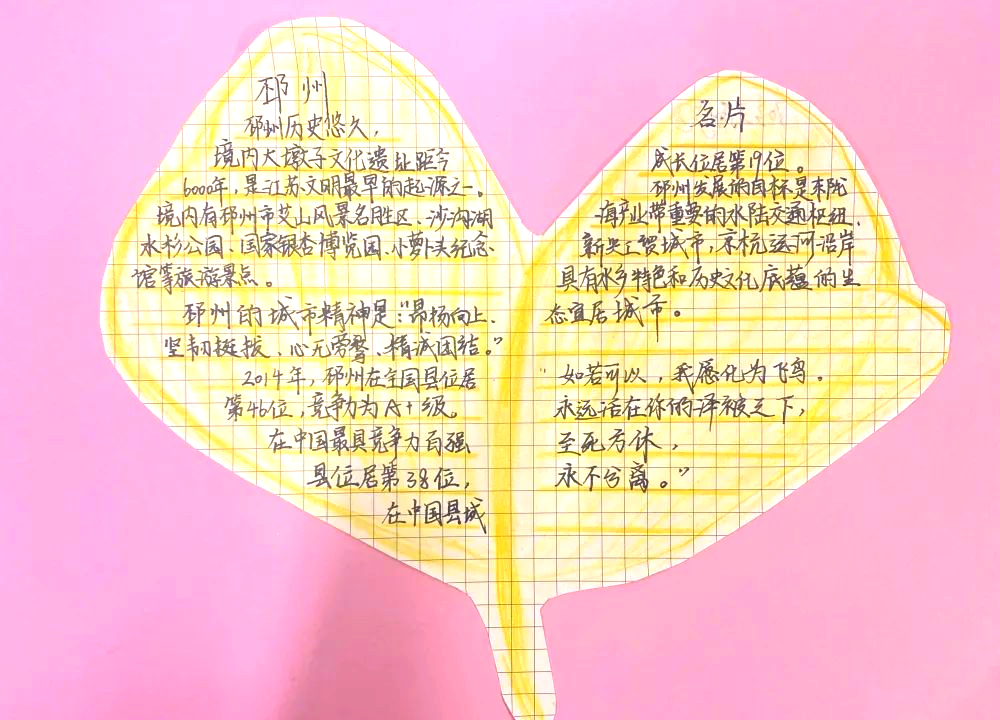 邳州
邳州历史悠久，
境内大墩子文化遗址距今
6000年，是江苏文明最早的起源之一。
境内有邳州市艾山风景名胜区、沙沟湖
水杉公园、国家银杏博览园、小萝卜头纪念
馆等旅游景点。
邳州的城市精神是："昂扬向上、
坚韧挺拔、心无旁骛、精诚团结。"
2014年，邳州在全国县位居
第46位，竞争力为A+级。
在中国最具竞争力百强
县位居第38位，
在中国县域
名片
成长位居第19位。
邳州发展的目标是东陇
海产业带重要的水陆交通枢纽、
新兴工贸城市，京杭运河沿岸
具有水乡特色和历史文化底蕴的生
态宜居城市。
"如若可以，我愿化为飞鸟。
永远活在你的泽被之下，
至死方休，
永不分离。"